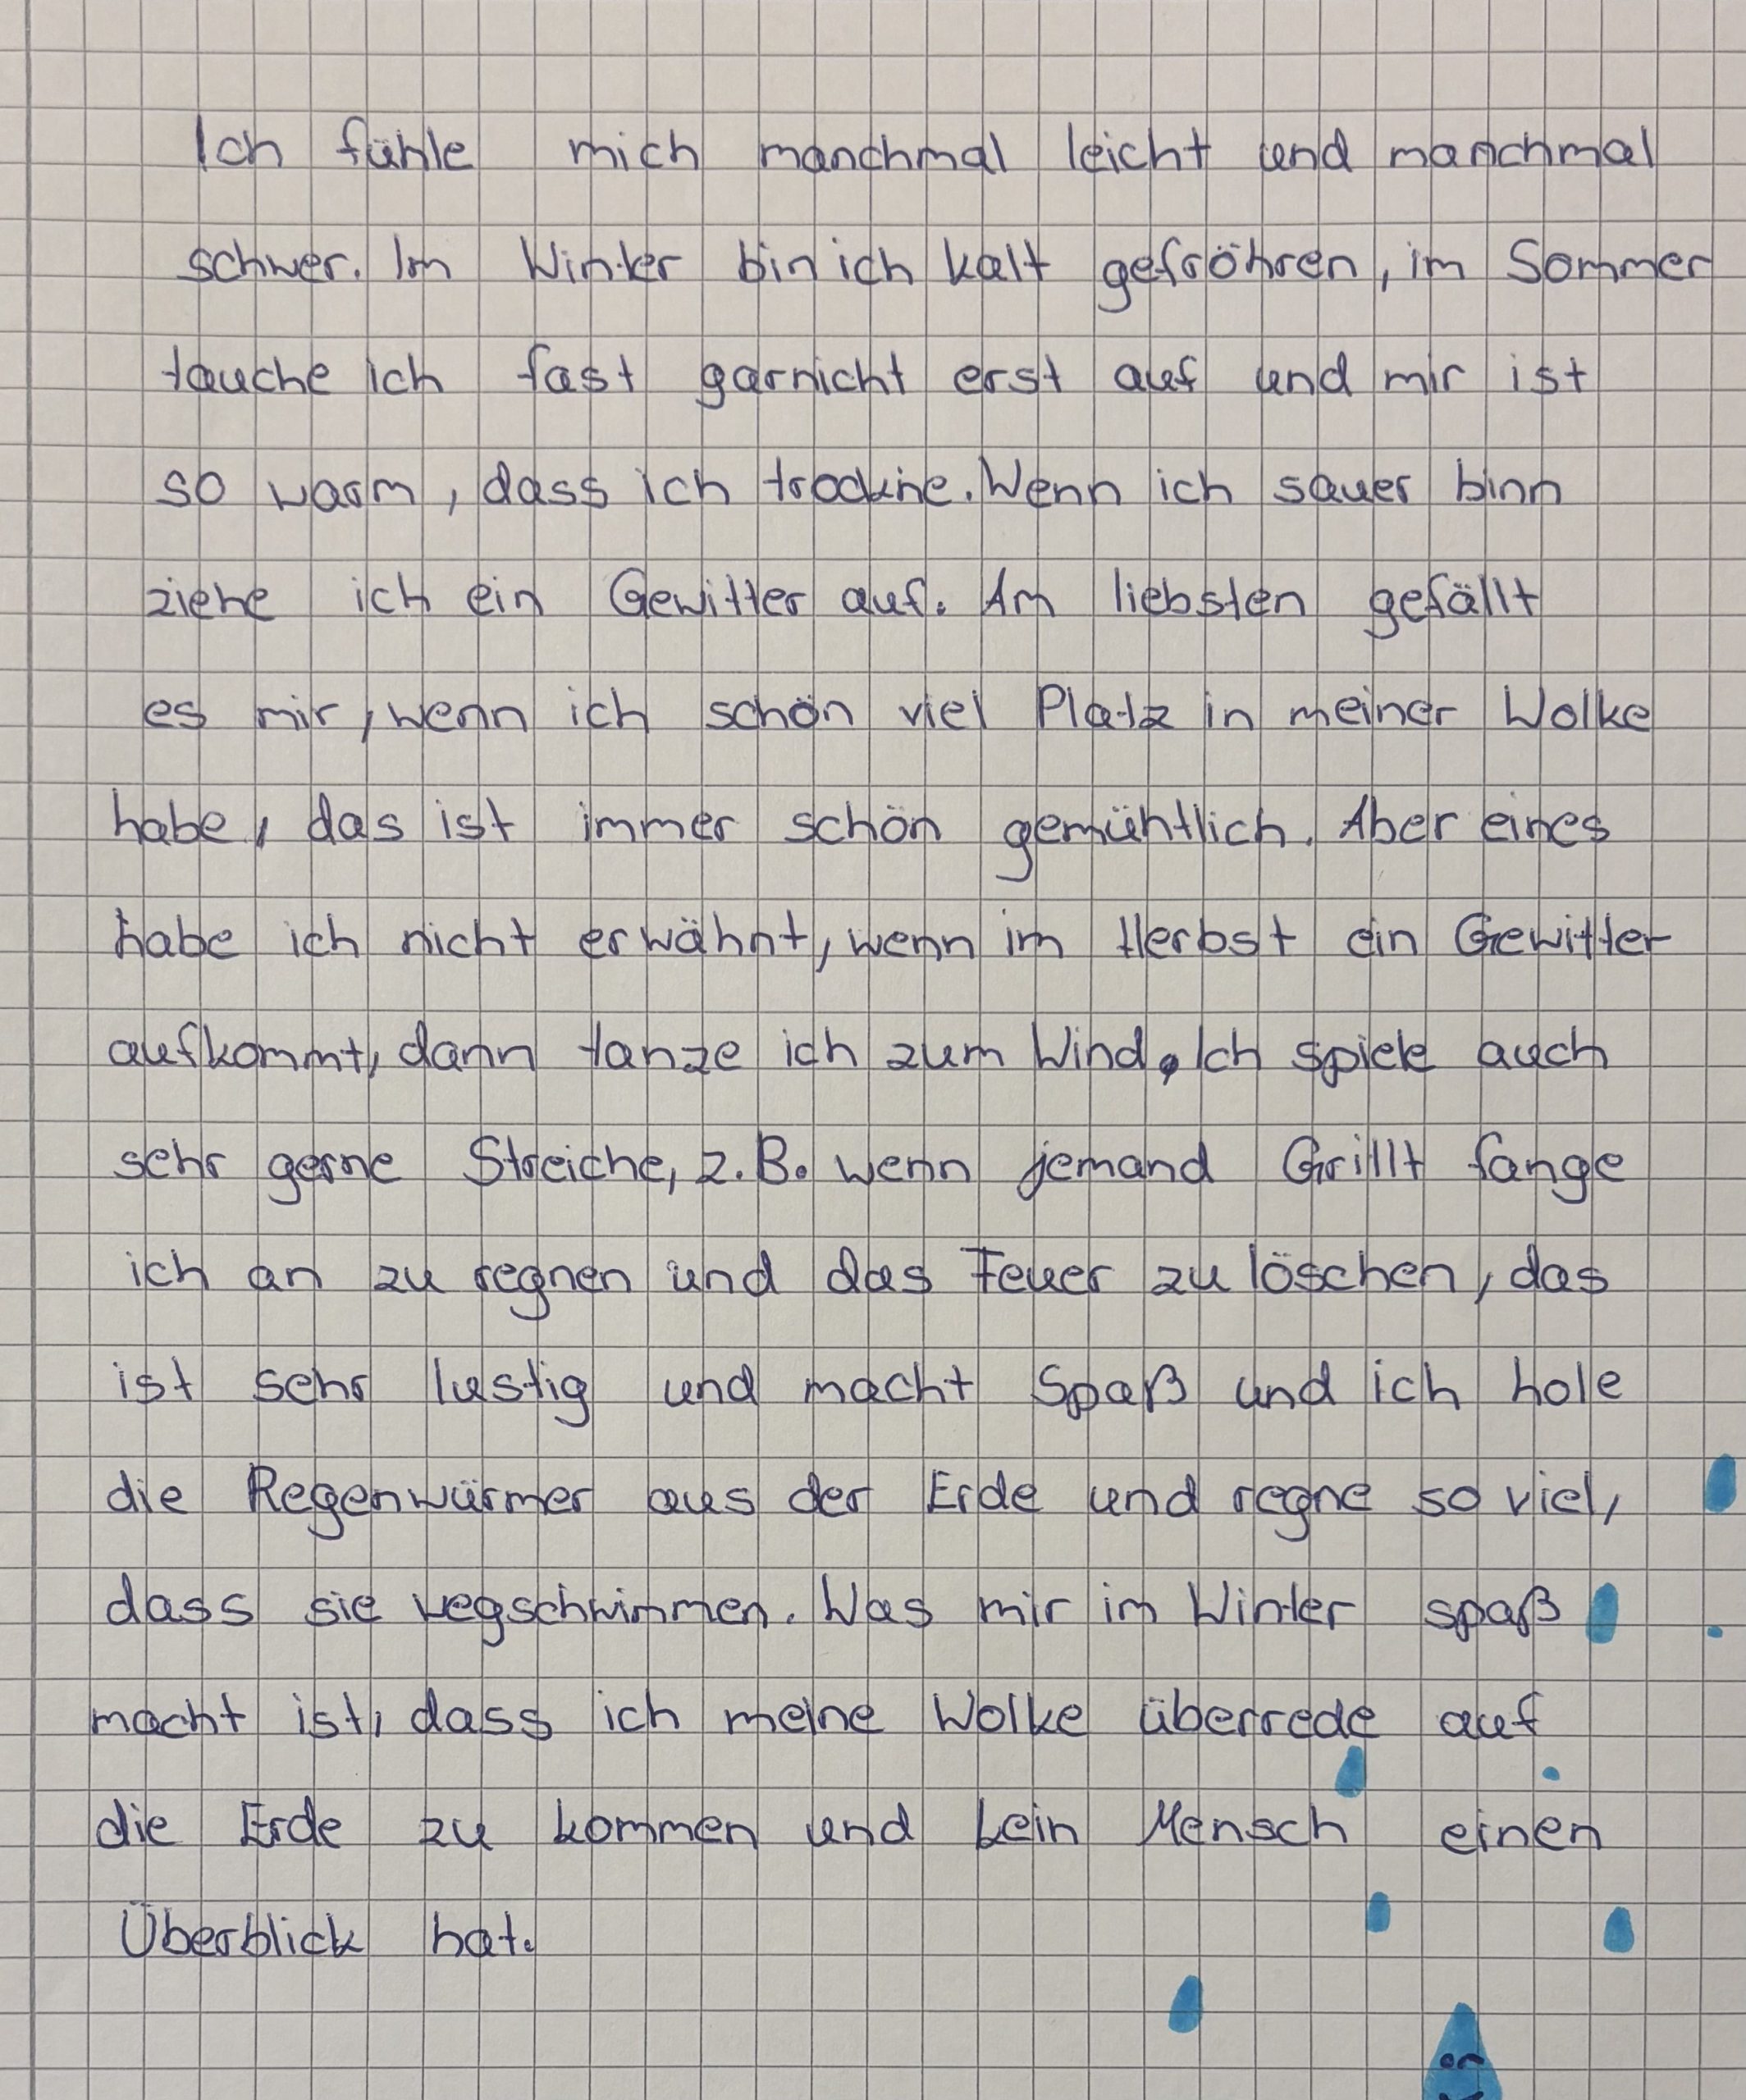 Ich fühle mich manchmal leicht und manchmal
schwer. Im Winter bin ich kalt gefröhren, im Sommer
tauche ich fast garnicht erst auf und mir ist
so warm, dass ich trockne. Wenn ich sauer binn
ziehe ich ein Gewitter auf. Am liebsten gefällt
es mir, wenn ich schön viel Platz in meiner Wolke
habe, das ist immer schön gemühtlich. Aber eines
habe ich nicht erwähnt, wenn im Herbst ein Gewitter
aufkommt, dann tanze ich zum Wind. Ich spiele auch
sehr gerne Streiche, z.B. wenn jemand Grillt fange
ich an zu regnen und das Feuer zu löschen, das
ist sehr lustig und macht Spaß und ich hole
die Regenwürmer aus der Erde und regne so viel,
dass sie wegschwimmen. Was mir im Winter spaß
macht ist, dass ich meine Wolke überrede auf
die Erde zu kommen und kein Mensch einen
Überblick hat.